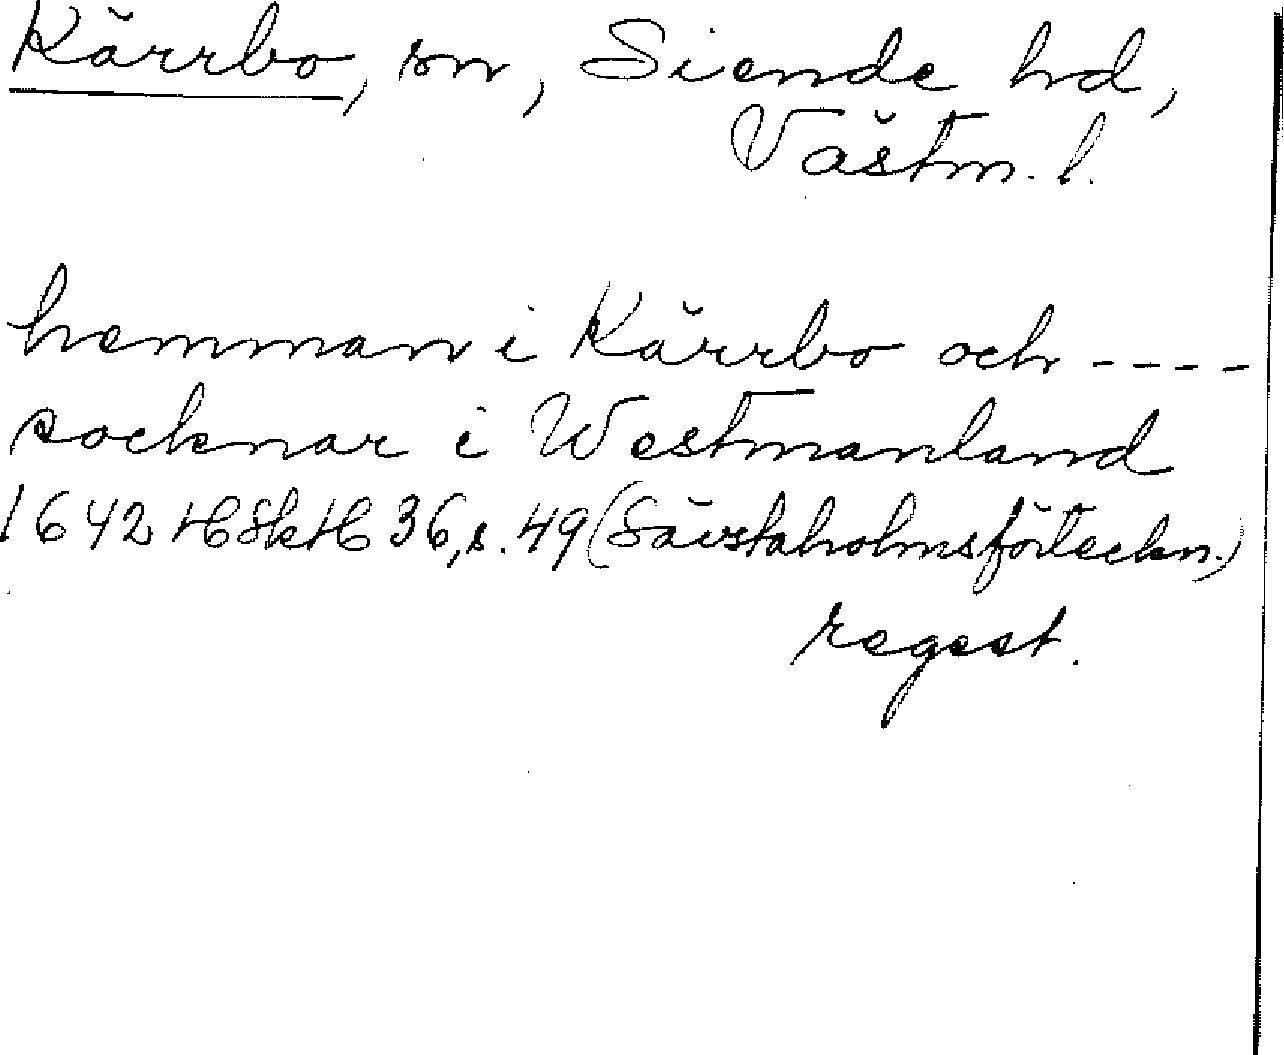 Kärrbo, sn, Siende hd,
Västm. l.
hemman i Kärrbo och ----
socknar i Westmanland
1642 HSkH 36, s. 49 (Sävstaholmsförteckn.)
regest.